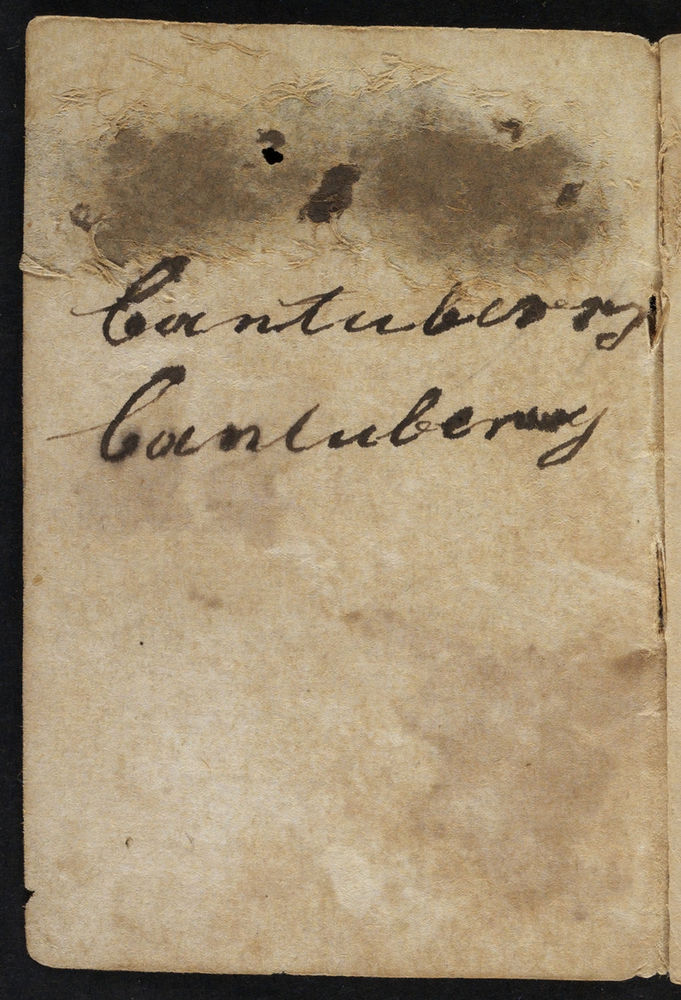 Cantuberry
Cantuberry